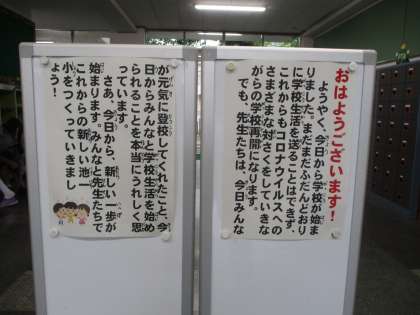 おはようございます！
ようやく、今日から学校が始ま
りました。まだまだふだんどおり
に学校生活を送ることはできず、
これからもコロナウイルスへの
さまざまな対さくをしていきな
がらの学校再開になります。
でも、先生たちは、今日みんな
が元気に登校してくれたこと、今
日からみんなと学校生活を始め
られることを本当にうれしく思
っています。
さあ、今日から、新しい一歩が
始まります。みんなと先生たちで
これからの新しい池一
小をつくっていきまし
ょう！